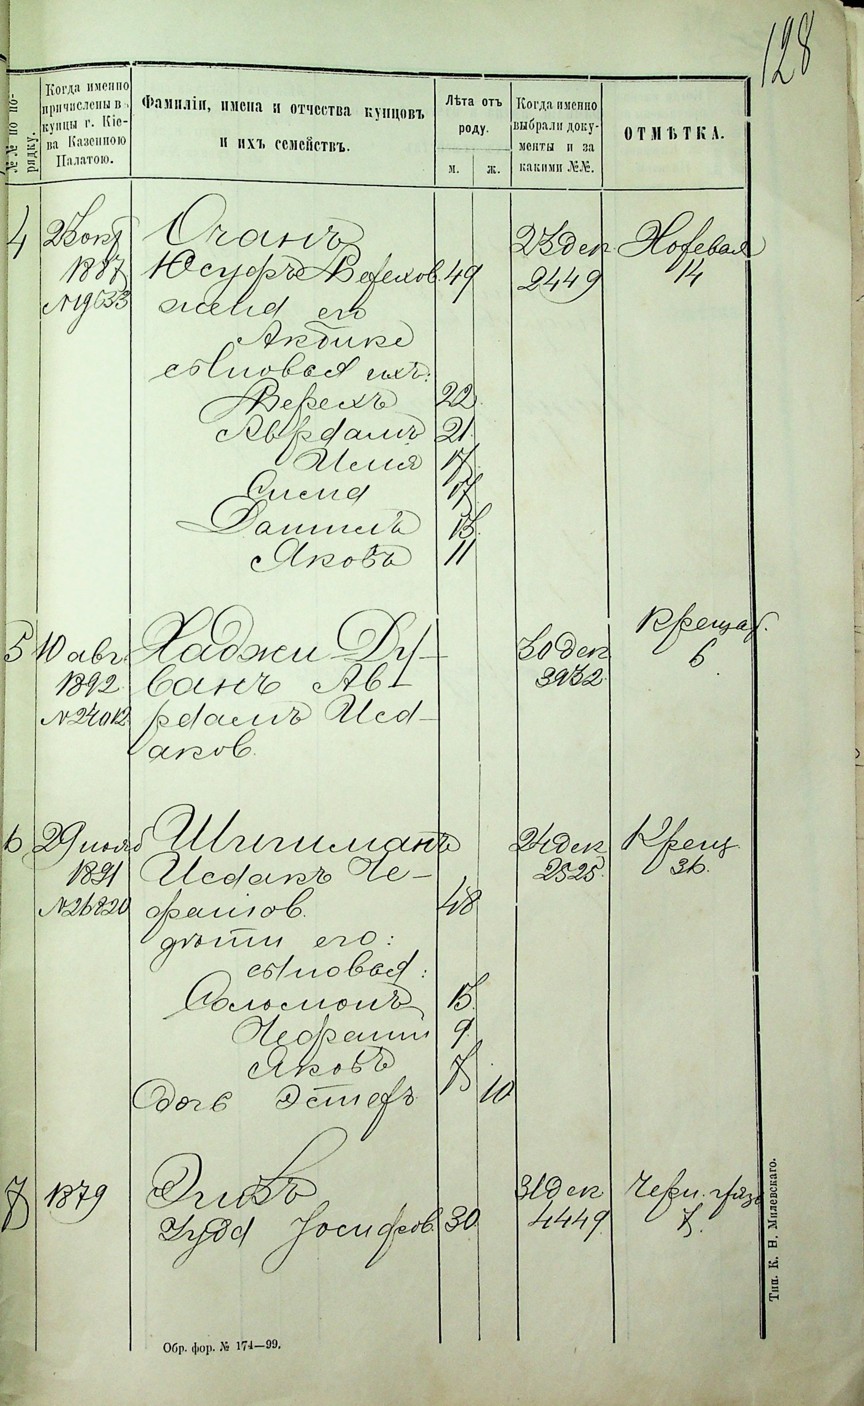 128
№№ по по-
рядку.
Когда именно
причислены в
купцы г. Кіе-
ва Казенною
Палатою.
Фамиліи, имена и отчества купцовъ
и ихъ семействъ.
Лѣта отъ
роду.
м. ж.
Когда именно
выбрали доку-
менты и за
какими №№.
ОТМѢТКА.
4 23 окт Очанъ 23 дек
1887 Юсуфъ Берахов 49 2449 14
жена его
Акбике
сыновья ихъ:
Берахъ 22
Авраамъ 21
Илия 17
Елисей 17
Даниилъ 13
Яковъ 11
Крещат.
5 10 авг. Хаджи Ду- 30 дек 6
1892 ванъ Ав- 3932
№ 24012 раамъ Иса-
аков.
6 29 нояб Шишманъ 24 дек Крещ.
1891 Исаакъ Че- 2525 36.
№ 26820 фаніов. 48
дѣти его:
сыновья:
Соломонъ 13
Чефании 9
Яковъ 7
Дочь Эстеръ 10
7 1879 31 дек
Іуда Іосифов 30 4449 7.
Обр. фор. № 174—99.
Тип. К. Н. Милевскаго.